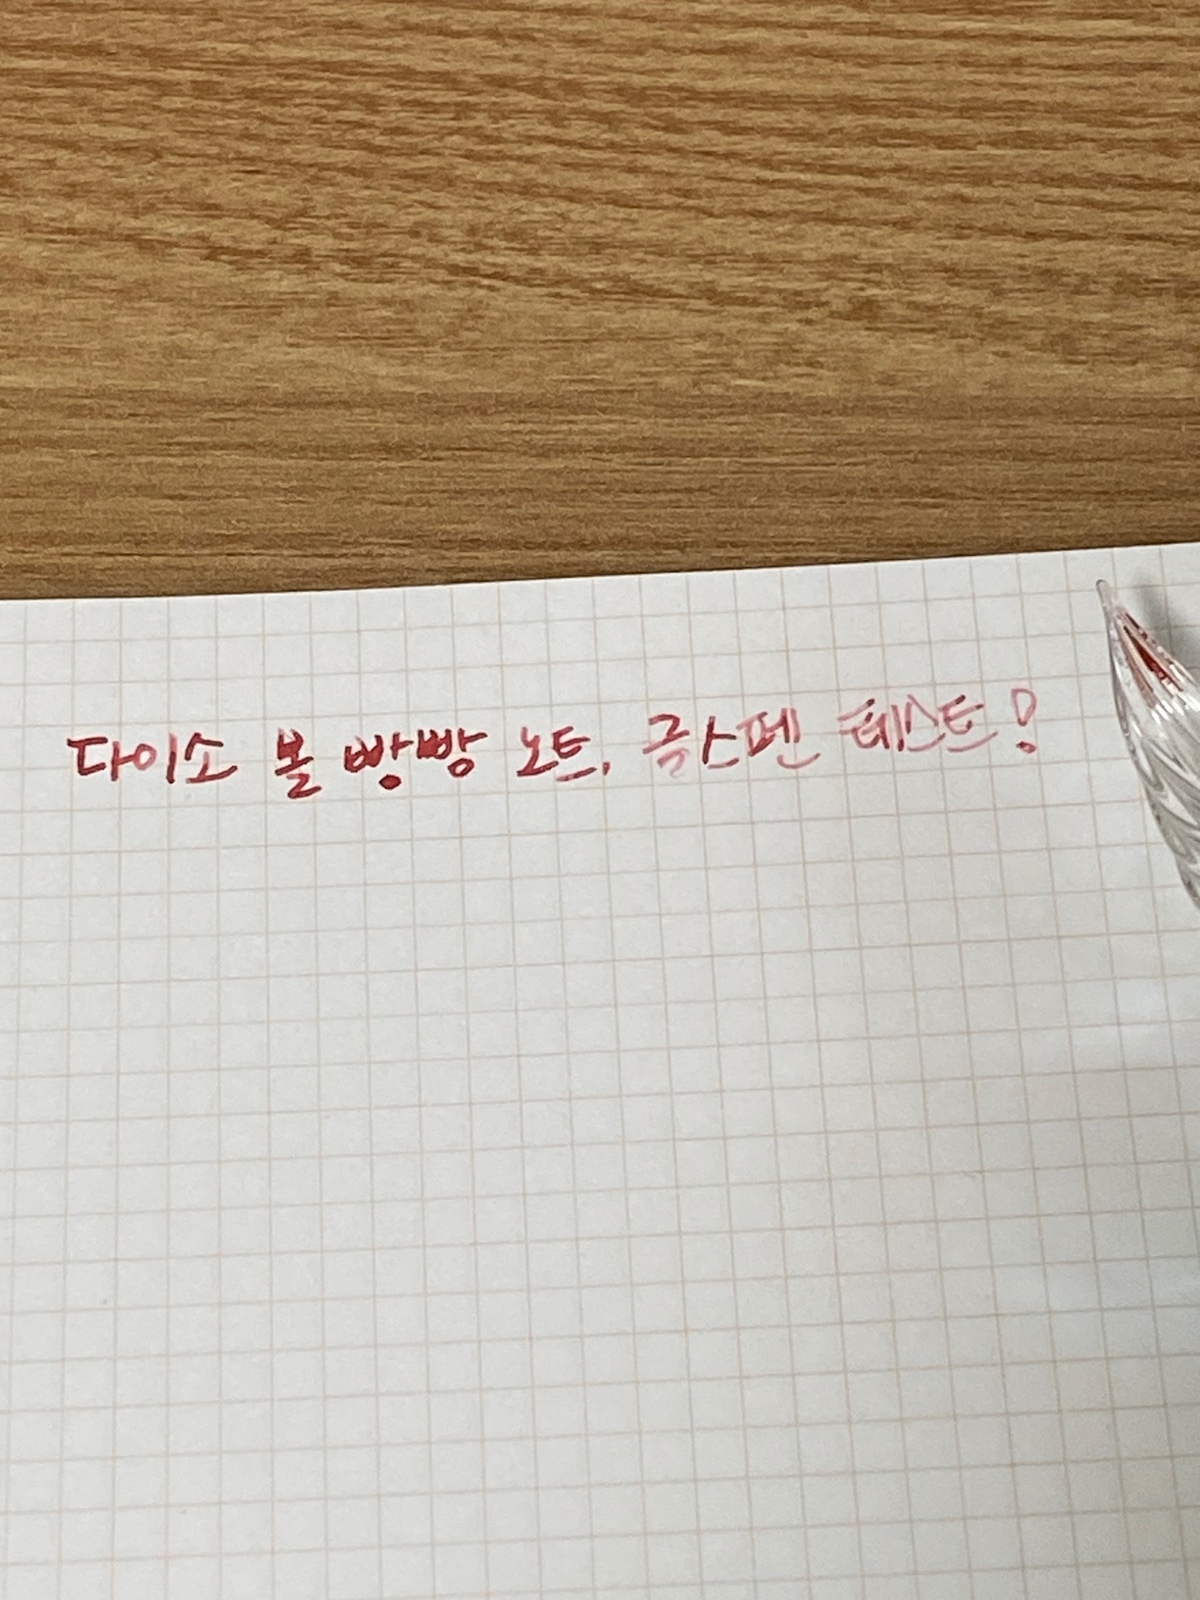 다이소 볼 빵빵 노트, 글스펜 테스트!